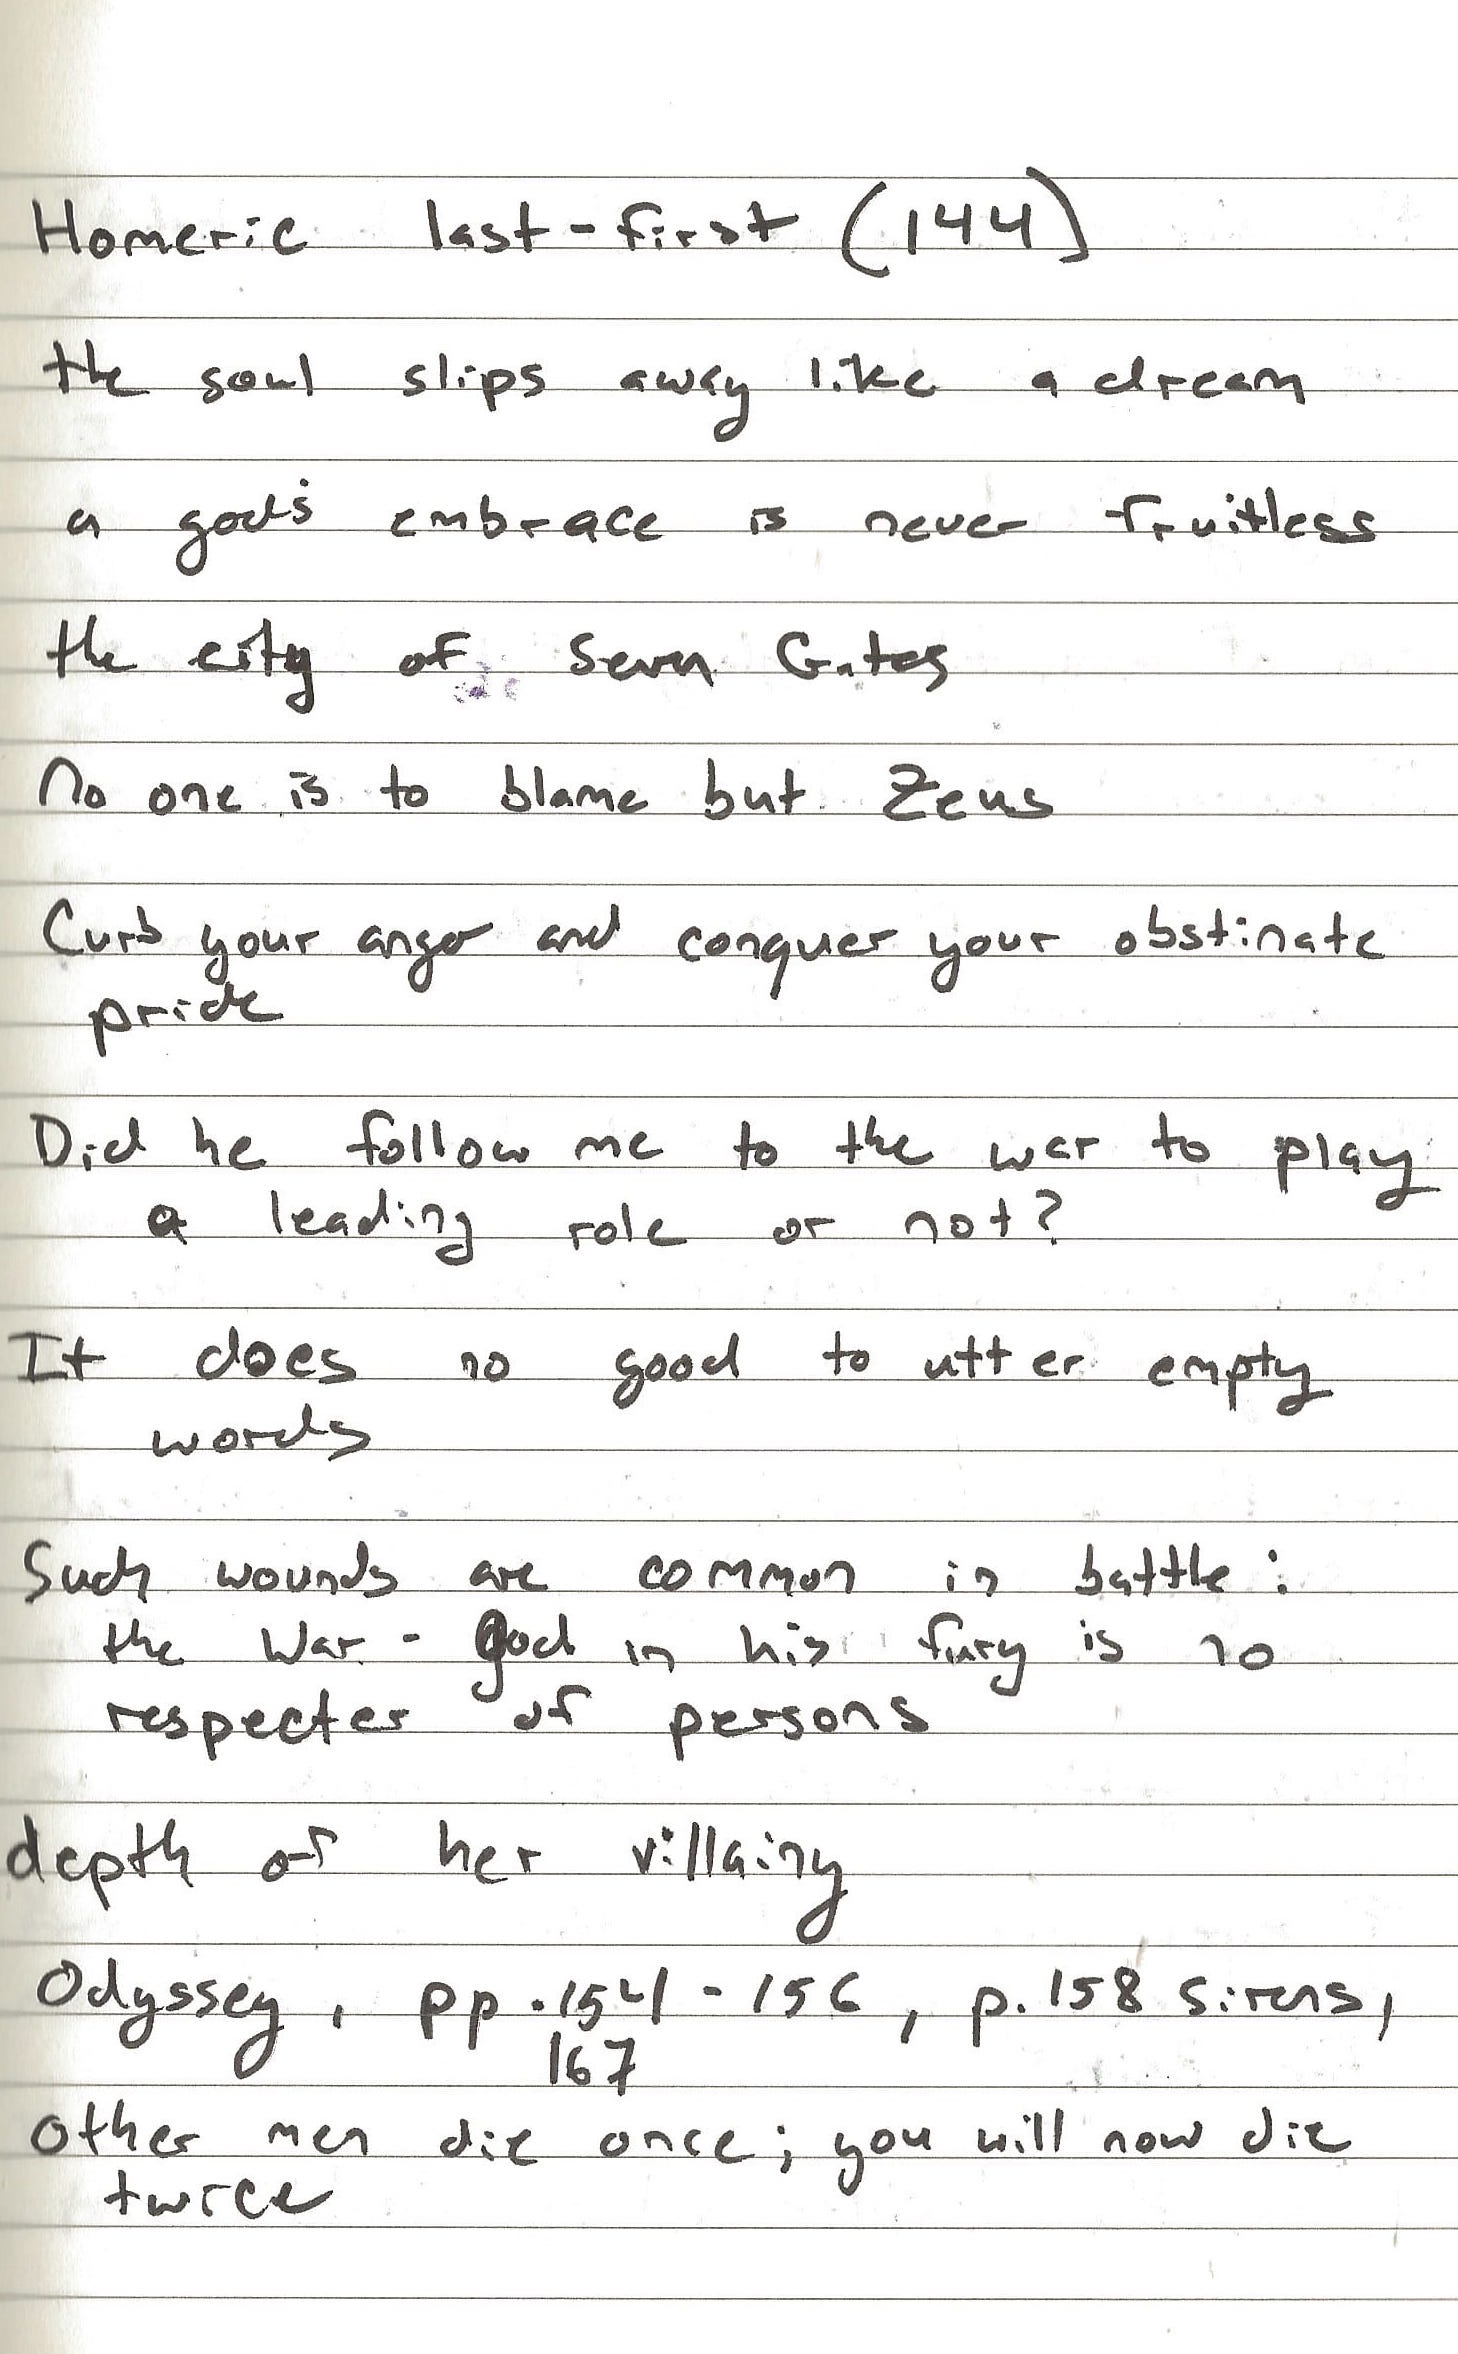 Homeric last-first (144)
the soul slips away like a dream
a god's embrace is never fruitless
the city of Seven Gates
No one is to blame but Zeus
Curb your anger and conquer your obstinate
pride
Did he follow me to the war to play
a leading role or not?
It does no good to utter empty
words
Such wounds are common in battle:
the War-God in his fury is no
respecter of persons
depth of her villainy
Odyssey, pp. 154-156, p. 158 Sirens,
167
other men die once; you will now die
twice